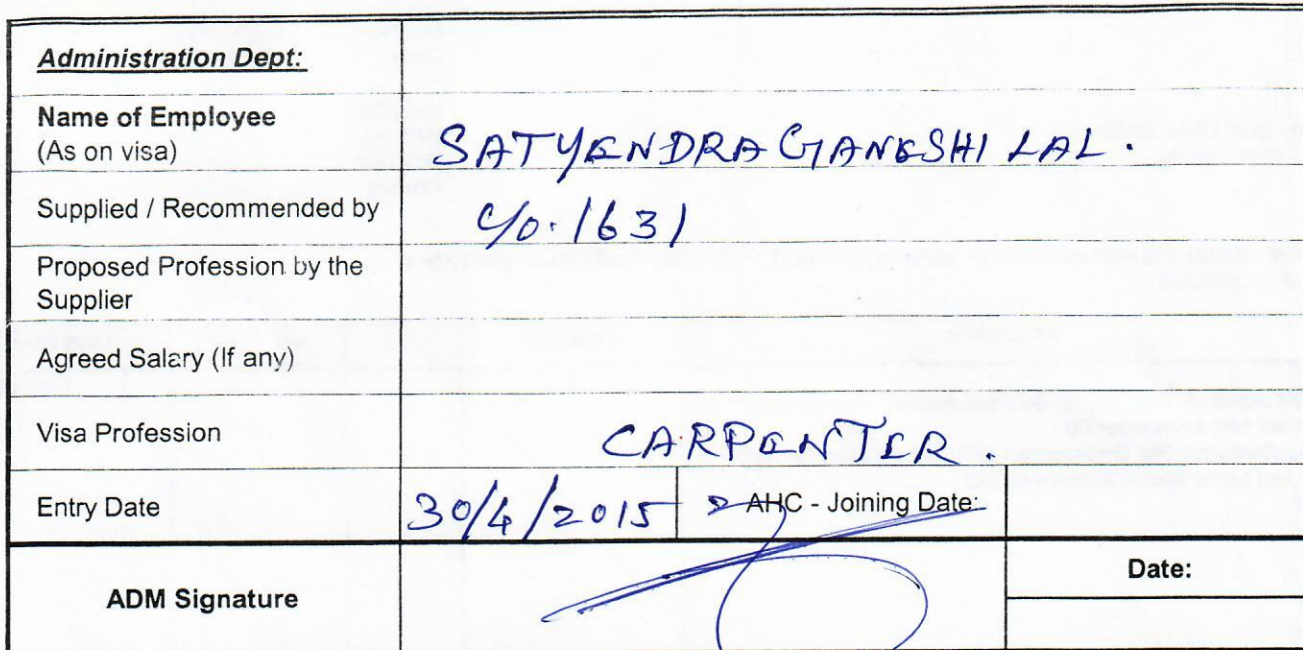 Administration Dept:
Name of Employee
(As on visa)
SATYENDRA GANESHI LAL.
Supplied / Recommended by
C/o. 1631
Proposed Profession by the
Supplier
Agreed Salary (If any)
Visa Profession
CARPENTER.
Entry Date
30/4/2015
AHC - Joining Date:
ADM Signature
Date: